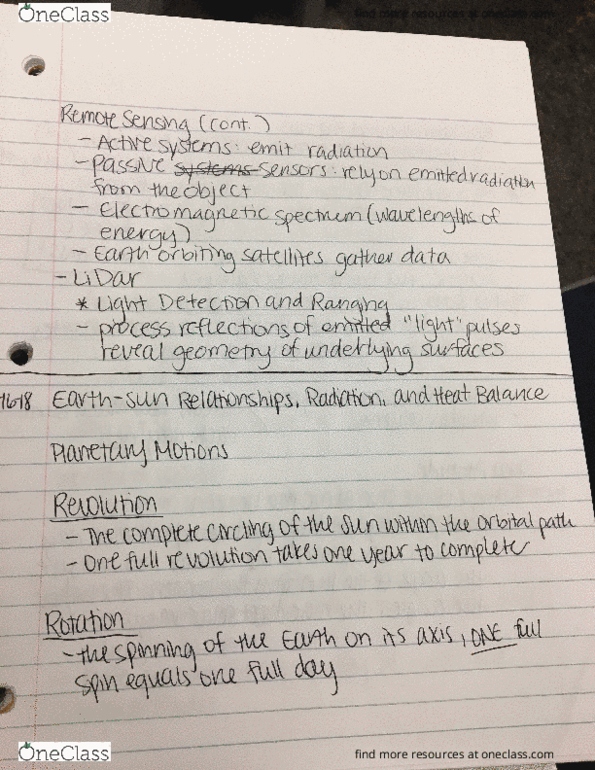 OneClass
find more resources at oneclass.com
Remote Sensing (cont.)
- Active systems: emit radiation
- Passive systems sensors: rely on emitted radiation
from the object
- Electromagnetic spectrum (wavelengths of
energy)
- Earth orbiting satellites gather data
- LiDar
* Light Detection and Ranging
- process reflections of emitted "light" pulses
reveal geometry of underlying surfaces
Earth-sun Relationships, Radiation, and Heat Balance
Planetary Motions
Revolution
- The complete circling of the sun within the orbital path
- One full revolution takes one year to complete
Rotation
- the spinning of the Earth on its axis, ONE full
spin equals one full day
OneClass
find more resources at oneclass.com